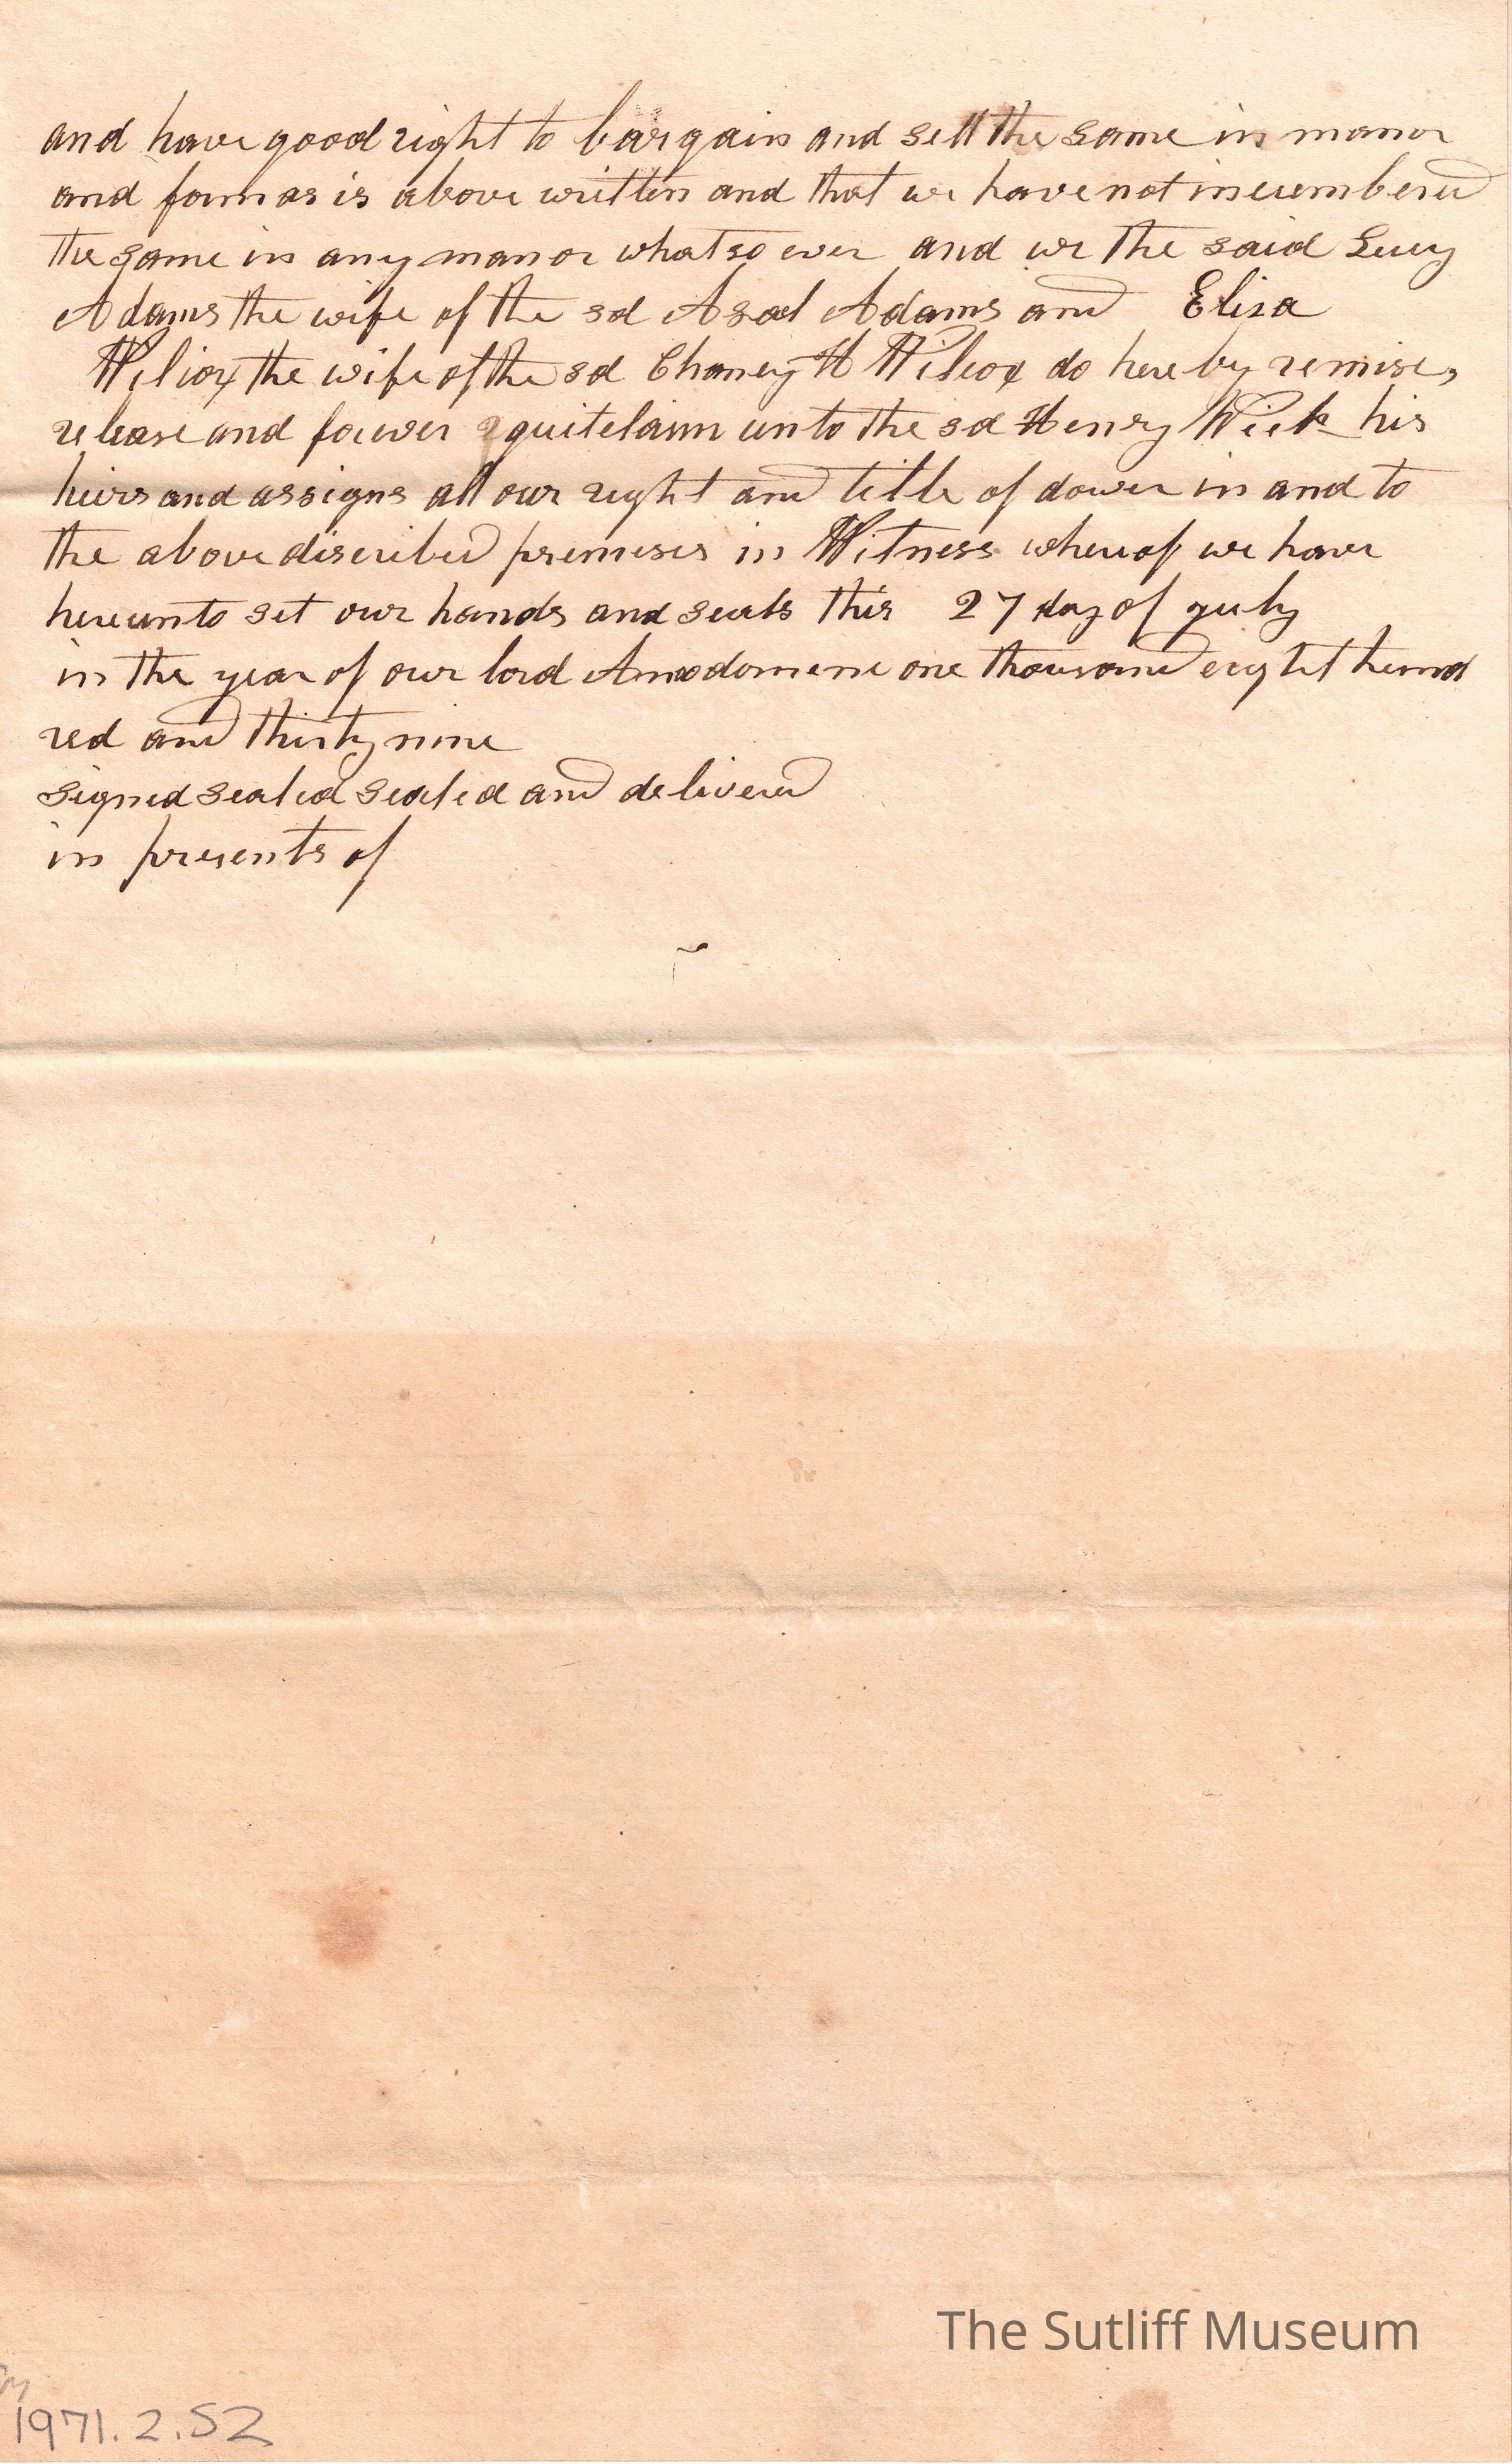 and have good right to bargain and sell the same in manor
and form as is above written and that we have not incumbered
the same in any manor whatso ever and we the said Lucy
Adams the wife of the sd Asael Adams and Eliza
Wilcox the wife of the sd Chaney H Wilcox do here by remise,
release and forever quitclaim unto the sd Henry Wick his
heirs and assigns all our right and title of dower in and to
the above discribed premises in Witness whereof we have
hereunto set our hands and seals this 27 day of july
in the year of our lord Annodomene one thousand eight hund
red and thirty nine
signed sealed sealed and delivered
in presents of
The Sutliff Museum
1971.2.52